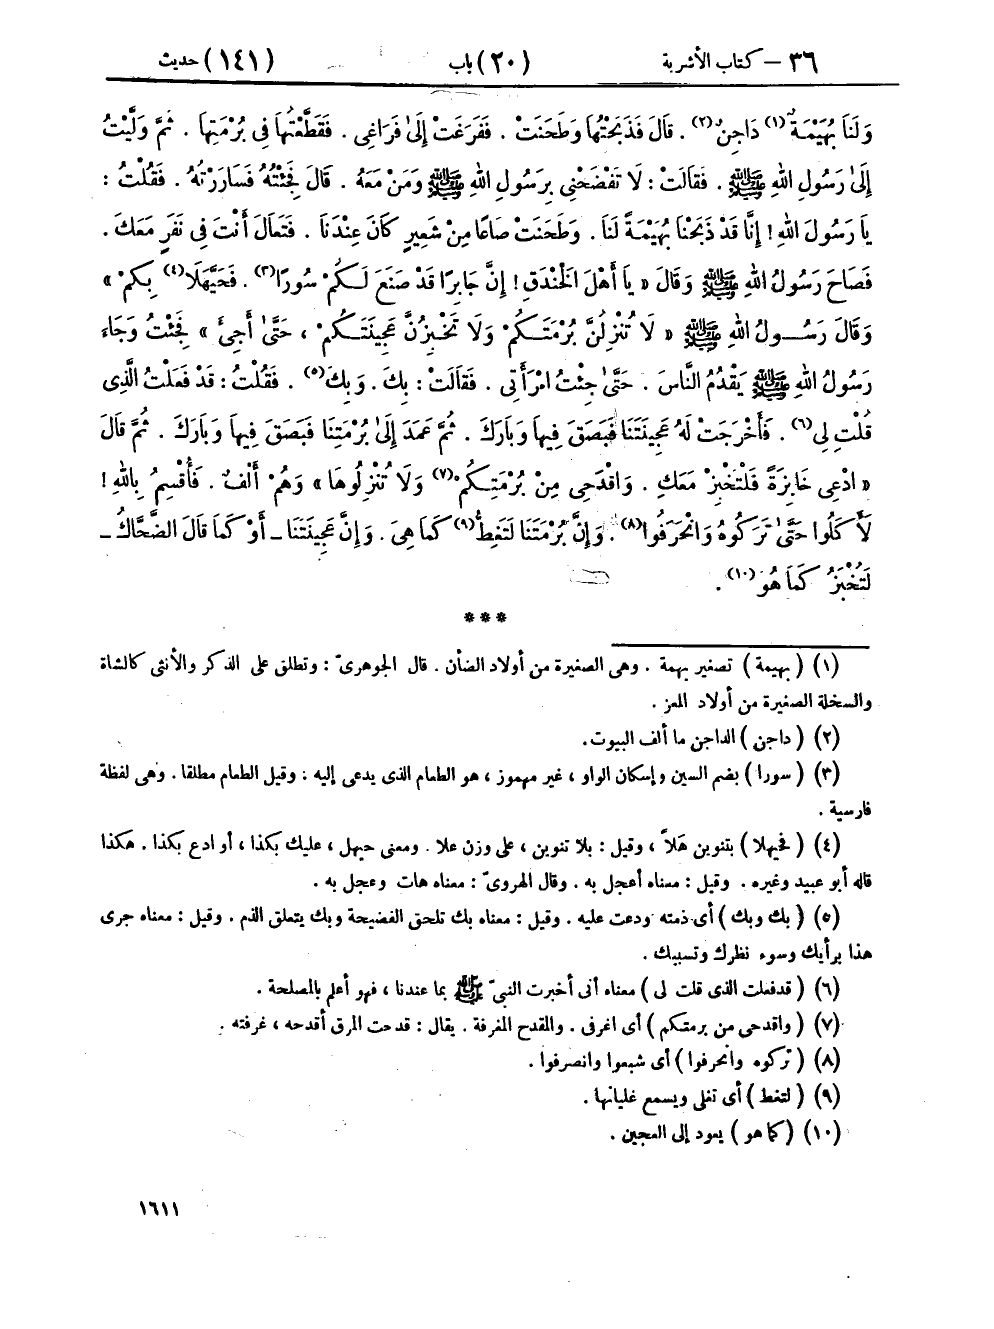 ٣٦ – كتاب الأشربة (٢٠) باب (١٤١) حديث
وَلَنَا بُهَيْمَةٌ(١) دَاجِنٌ(٢) . قَالَ فَذَبَحْتُهَا وَطَحَنَتْ . فَفَرَغَتْ إِلَىٰ فَرَاغِي . فَقَطَّعْتُهَا فِي بُرْمَتِهَا . ثُمَّ وَلَّيْتُ
إِلَىٰ رَسُولِ اللهِ ﷺ . فَقَالَتْ : لَا تَفْضَحْنِي بِرَسُولِ اللهِ ﷺ وَمَنْ مَعَهُ . قَالَ فَجِئْتُهُ فَسَارَرْتُهُ . فَقُلْتُ :
يَا رَسُولَ اللهِ ! إِنَّا قَدْ ذَبَحْنَا بُهَيْمَةً لَنَا . وَطَحَنَتْ صَاعًا مِنْ شَعِيرٍ كَانَ عِنْدَنَا . فَتَعَالَ أَنْتَ فِي نَفَرٍ مَعَكَ .
فَصَاحَ رَسُولُ اللهِ ﷺ وَقَالَ « يَا أَهْلَ الْخَنْدَقِ ! إِنَّ جَابِرًا قَدْ صَنَعَ لَكُمْ سُورًا(٣) . فَحَيَّهَلَا(٤) بِكُمْ »
وَقَالَ رَسُولُ اللهِ ﷺ « لَا تُنْزِلُنَّ بُرْمَتَكُمْ وَلَا تَخْبِزُنَّ عَجِينَتَكُمْ ، حَتَّىٰ أَجِئَ » فَجِئْتُ وَجَاءَ
رَسُولُ اللهِ ﷺ يَقْدُمُ النَّاسَ . حَتَّىٰ جِئْتُ امْرَأَتِي . فَقَالَتْ : بِكَ . وَبِكَ(٥) . فَقُلْتُ : قَدْ فَعَلْتُ الَّذِى
قُلْتِ لِي(٦) . فَأَخْرَجَتْ لَهُ عَجِينَتَنَا فَبَصَقَ فِيهَا وَبَارَكَ . ثُمَّ عَمَدَ إِلَىٰ بُرْمَتِنَا فَبَصَقَ فِيهَا وَبَارَكَ . ثُمَّ قَالَ
« ادْعِى خَابِزَةً فَلْتَخْبِزْ مَعَكِ . وَاقْدَحِى مِنْ بُرْمَتِكُمْ(٧) وَلَا تُنْزِلُوهَا » وَهُمْ أَلْفٌ . فَأُقْسِمُ بِاللهِ !
لَأَكَلُوا حَتَّىٰ تَرَكُوهُ وَانْحَرَفُوا(٨) . وَإِنَّ بُرْمَتَنَا لَتَغِطُّ(٩) كَمَا هِيَ . وَإِنَّ عَجِينَتَنَا ـ أَوْ كَمَا قَالَ الضَّحَّاكُ ـ
لَتُخْبَزُ كَمَا هُوَ(١٠) .
***
(١) ( بهيمة ) تصغير بهمة . وهى الصغيرة من أولاد الضأن . قال الجوهرىّ : وتطلق على الذكر والأنثى كالشاة
والسخلة الصغيرة من أولاد المعز .
(٢) ( داجن ) الداجن ما ألف البيوت .
(٣) ( سورا ) بضم السين وإسكان الواو ، غير مهموز ، هو الطعام الذى يدعى إليه : وقيل الطعام مطلقا . وهى لفظة
فارسية .
(٤) ( فحيهلا ) بتنوين هَلاً ، وقيل : بلا تنوين ، على وزن علا . ومعنى حيهل ، عليك بكذا ، أو ادع بكذا . هكذا
قاله أبو عبيد وغيره . وقيل : معناه أعجل به . وقال الهروىّ : معناه هات وعجل به .
(٥) ( بك وبك ) أى ذمته ودعت عليه . وقيل : معناه بك تلحق الفضيحة وبك يتعلق الذم . وقيل : معناه جرى
هذا برأيك وسوء نظرك وتسببك .
(٦) ( قدفعلت الذى قلت لى ) معناه أنى أخبرت النبىّ ﷺ بما عندنا ، فهو أعلم بالمصلحة .
(٧) ( واقدحى من برمتكم ) أى اغرفى . والمقدح المغرفة . يقال : قدحت المرق أقدحه ، غرفته .
(٨) ( تركوه وانحرفوا ) أى شبعوا وانصرفوا .
(٩) ( لتغط ) أى تغلى ويسمع غليانها .
(١٠) ( كما هو ) يعود إلى العجين .
١٦١١